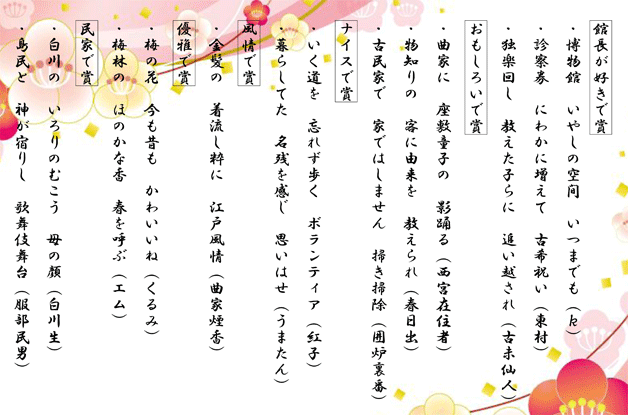 館長が好きで賞
・博物館　いやしの空間　いつまでも(k)
・診察券　にわかに増えて　古希祝い(東村)
・独楽回し　教えた子らに　追い越され(古未仙人)
おもしろいで賞
・曲家に　座敷童子の　影踊る(西宮在住者)
・物知りの　客に由来を　教えられ(春日出)
・古民家で　家ではしません　掃き掃除(囲炉裏番)
ナイスで賞
・いく道を　忘れず歩く　ボランティア(紅子)
・暮らしてた　名残を感じ　思いはせ(うまたん)
風情で賞
・金髪の　着流し粋に　江戸風情(曲家煙香)
優雅で賞
・梅の花　今も昔も　かわいいね(くるみ)
・梅林の　ほのかな香　春を呼ぶ(エム)
民家で賞
・白川の　いろりのむこう　母の顔(白川生)
・島民と　神が宿りし　歌舞伎舞台(服部民男)